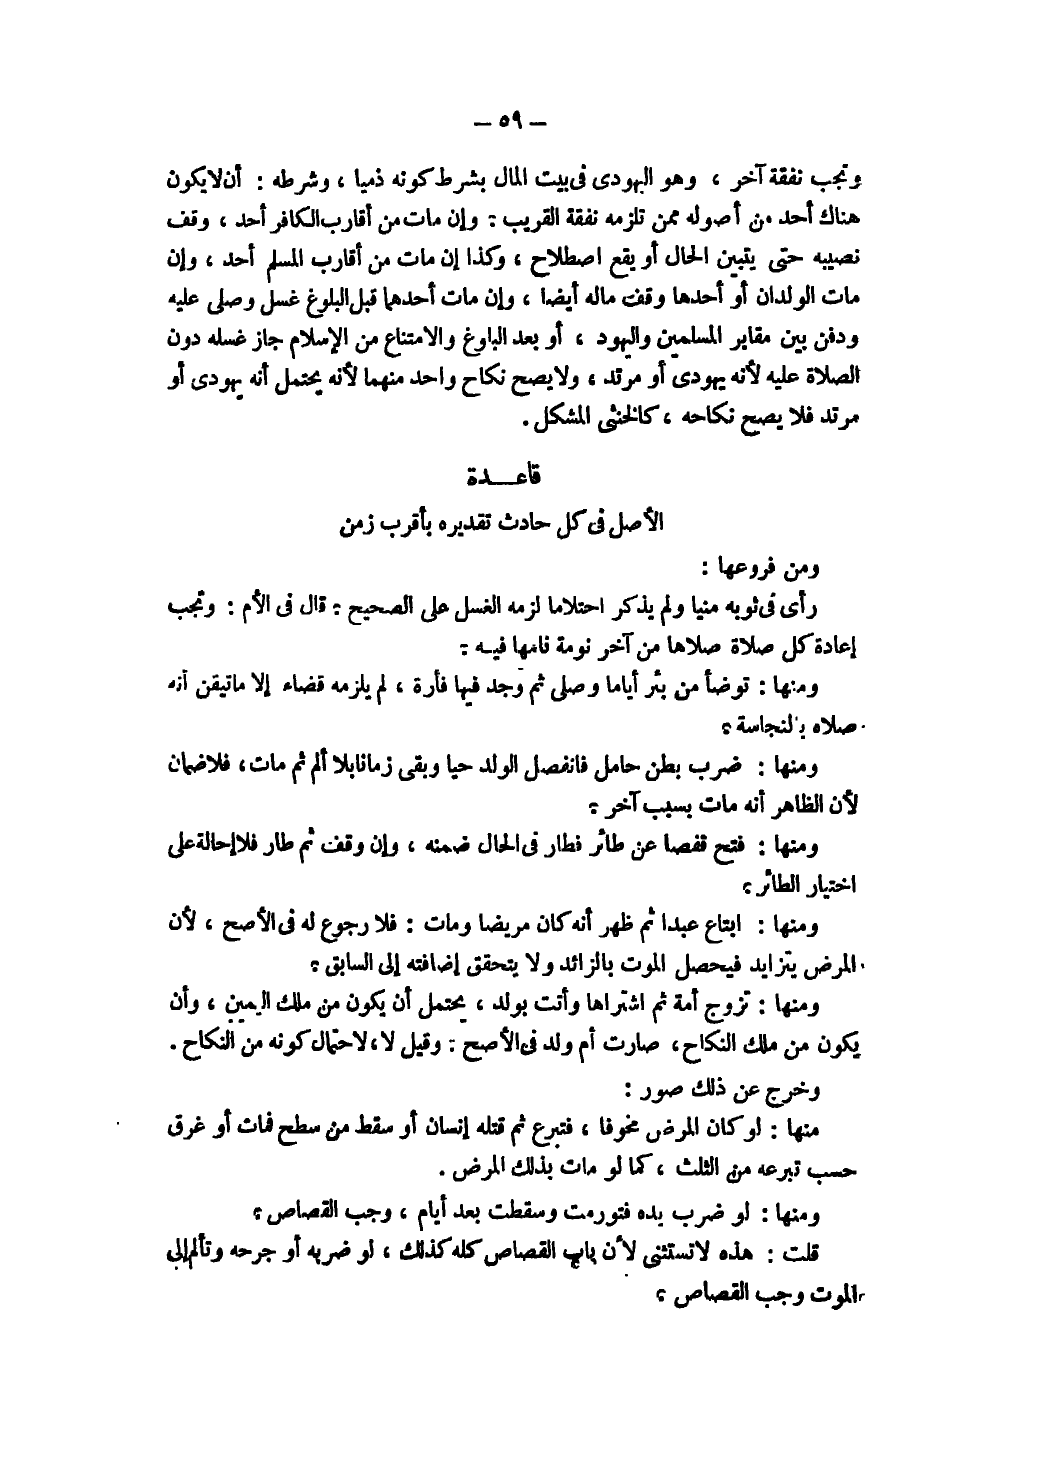 — ٥٩ —
وتجب نفقة آخر ، وهو اليهودى فى بيت المال بشرط كونه ذميا ، وشرطه : أن لا يكون
هناك أحد من أصوله ممن تلزمه نفقة القريب ؛ وإن مات من أقارب الكافر أحد ، وقف
نصيبه حتى يتبين الحال أو يقع اصطلاح ، وكذا إن مات من أقارب المسلم أحد ، وإن
مات الولدان أو أحدها وقف ماله أيضا ، وإن مات أحدهما قبل البلوغ غسل وصلى عليه
ودفن بين مقابر المسلمين واليهود ، أو بعد البلوغ والامتناع من الإسلام جاز غسله دون
الصلاة عليه لأنه يهودى أو مرتد ، ولا يصح نكاح واحد منهما لأنه يحتمل أنه يهودى أو
مرتد فلا يصح نكاحه ، كالخنثى المشكل .
قاعـــدة
الأصل فى كل حادث تقديره بأقرب زمن
ومن فروعها :
رأى فى ثوبه منيا ولم يذكر احتلاما لزمه الغسل على الصحيح ؛ قال فى الأم : وتجب
إعادة كل صلاة صلاها من آخر نومة نامها فيـه ؛
ومنها : توضأ من بئر أياما وصلى ثم وجد فيها فأرة ، لم يلزمه قضاء إلا ماتيقن أنه
صلاه بالنجاسة ؛
ومنها : ضرب بطن حامل فانفصل الولد حيا وبقى زمانا بلا ألم ثم مات ، فلا ضمان
لأن الظاهر أنه مات بسبب آخر ؛
ومنها : فتح قفصا عن طائر فطار فى الحال ضمنه ، وإن وقف ثم طار فلا إحالة على
اختيار الطائر ؛
ومنها : ابتاع عبدا ثم ظهر أنه كان مريضا ومات : فلا رجوع له فى الأصح ، لأن
المرض يتزايد فيحصل الموت بالزائد ولا يتحقق إضافته إلى السابق ؛
ومنها : تزوج أمة ثم اشتراها وأتت بولد ، يحتمل أن يكون من ملك اليمين ، وأن
يكون من ملك النكاح ، صارت أم ولد فى الأصح ؛ وقيل لا ، لاحتمال كونه من النكاح .
وخرج عن ذلك صور :
منها : لو كان المرض مخوفا ، فتبرع ثم قتله إنسان أو سقط من سطح فمات أو غرق
حسب تبرعه من الثلث ، كما لو مات بذلك المرض .
ومنها : لو ضرب يده فتورمت وسقطت بعد أيام ، وجب القصاص ؛
قلت : هذه لا تستثنى لأن باب القصاص كله كذلك ، لو ضربه أو جرحه وتألم إلى
الموت وجب القصاص ؛